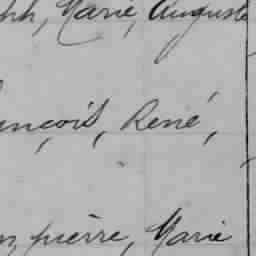 phh, Marie, Auguste
ençois, René,
pierre, Marie